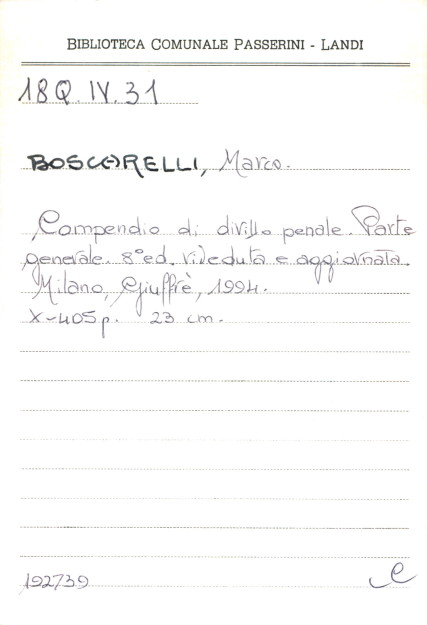 BIBLIOTECA COMUNALE PASSERINI - LANDI
18Q.IV.31
BOSCARELLI, Marco.
Compendio di diritto penale. Parte
generale. 8°ed. riveduta e aggiornata.
Milano, Giuffrè, 1994.
X-405p. 23 cm.
192739